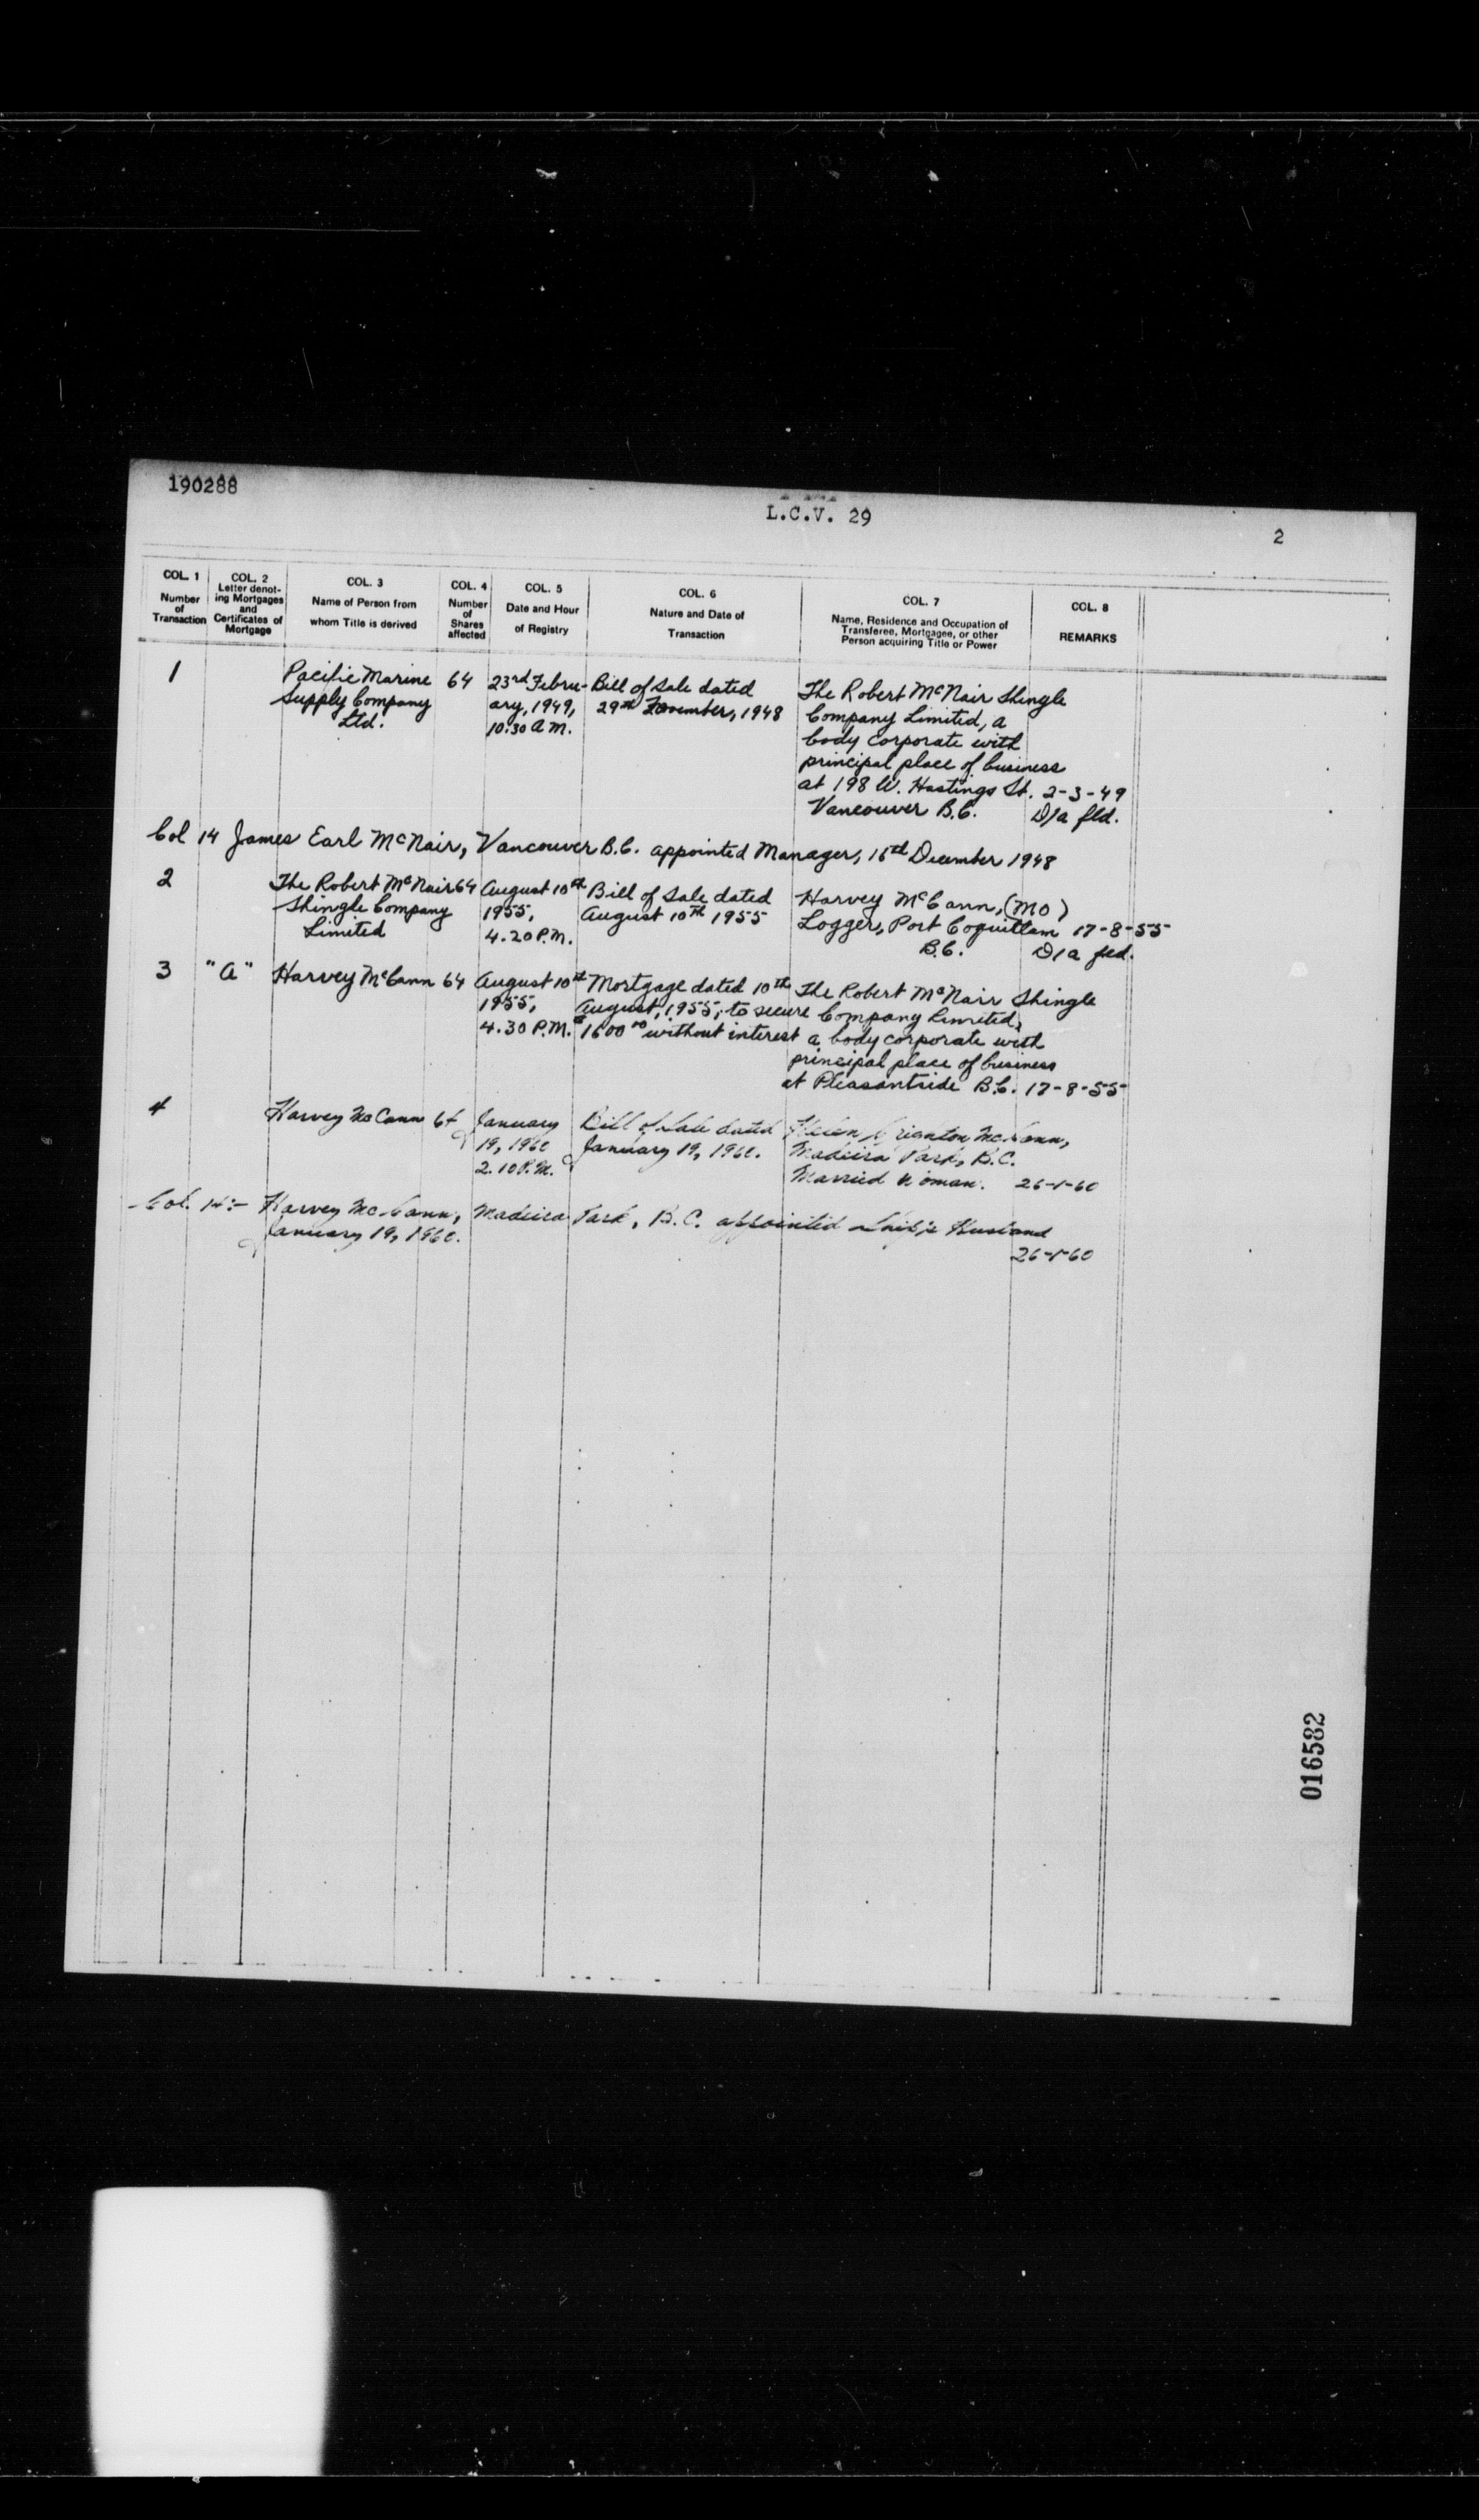 190288
L.C.V. 29
2
COL. 1
Number
of
Transaction
COL. 2
Letter denot-
ing Mortgages
and
Certificates of
Mortgage
COL. 3
Name of Person from
whom Title is derived
COL. 4
Number
of
Shares
affected
COL. 5
Date and Hour
of Registry
COL. 6
Nature and Date of
Transaction
COL. 7
Name, Residence and Occupation of
Transferee, Mortgagee, or other
Person acquiring Title or Power
COL. 8
REMARKS
1
Pacific Marine
Supply Company
Ltd.
64
23rd Febru-
ary, 1949,
10.30 A.M.
Bill of Sale dated
29th November, 1948
The Robert McNair Shingle
Company Limited, a
body corporate with
principal place of business
at 198 W. Hastings St.
Vancouver B.C.
2-3-49
D/a fld.
Col 14 James Earl McNair, Vancouver B.C. appointed Manager, 16th December 1948
2
The Robert McNair
Shingle Company
Limited
64
August 10th
1955,
4.20 P.M.
Bill of Sale dated
August 10th 1955
Harvey McCann, (MO)
Logger, Port Coquitlam
B.C.
17-8-55
D/a fld.
3
"A"
Harvey McCann
64
August 10th
1955,
4.30 P.M.
Mortgage dated 10th
August, 1955, to secure
$1600.00 without interest
The Robert McNair Shingle
Company Limited,
a body corporate with
principal place of business
at Pleasantside B.C.
17-8-55
4
Harvey McCann
64
January
19, 1960
2.10 P.M.
Bill of Sale dated
January 19, 1960.
Helen McCann,
Madeira Park, B.C.
Married Woman.
26-1-60
Col. 14:- Harvey McCann, Madeira Park, B.C. appointed Ship's Husband
January 19, 1960.
26-1-60
016582